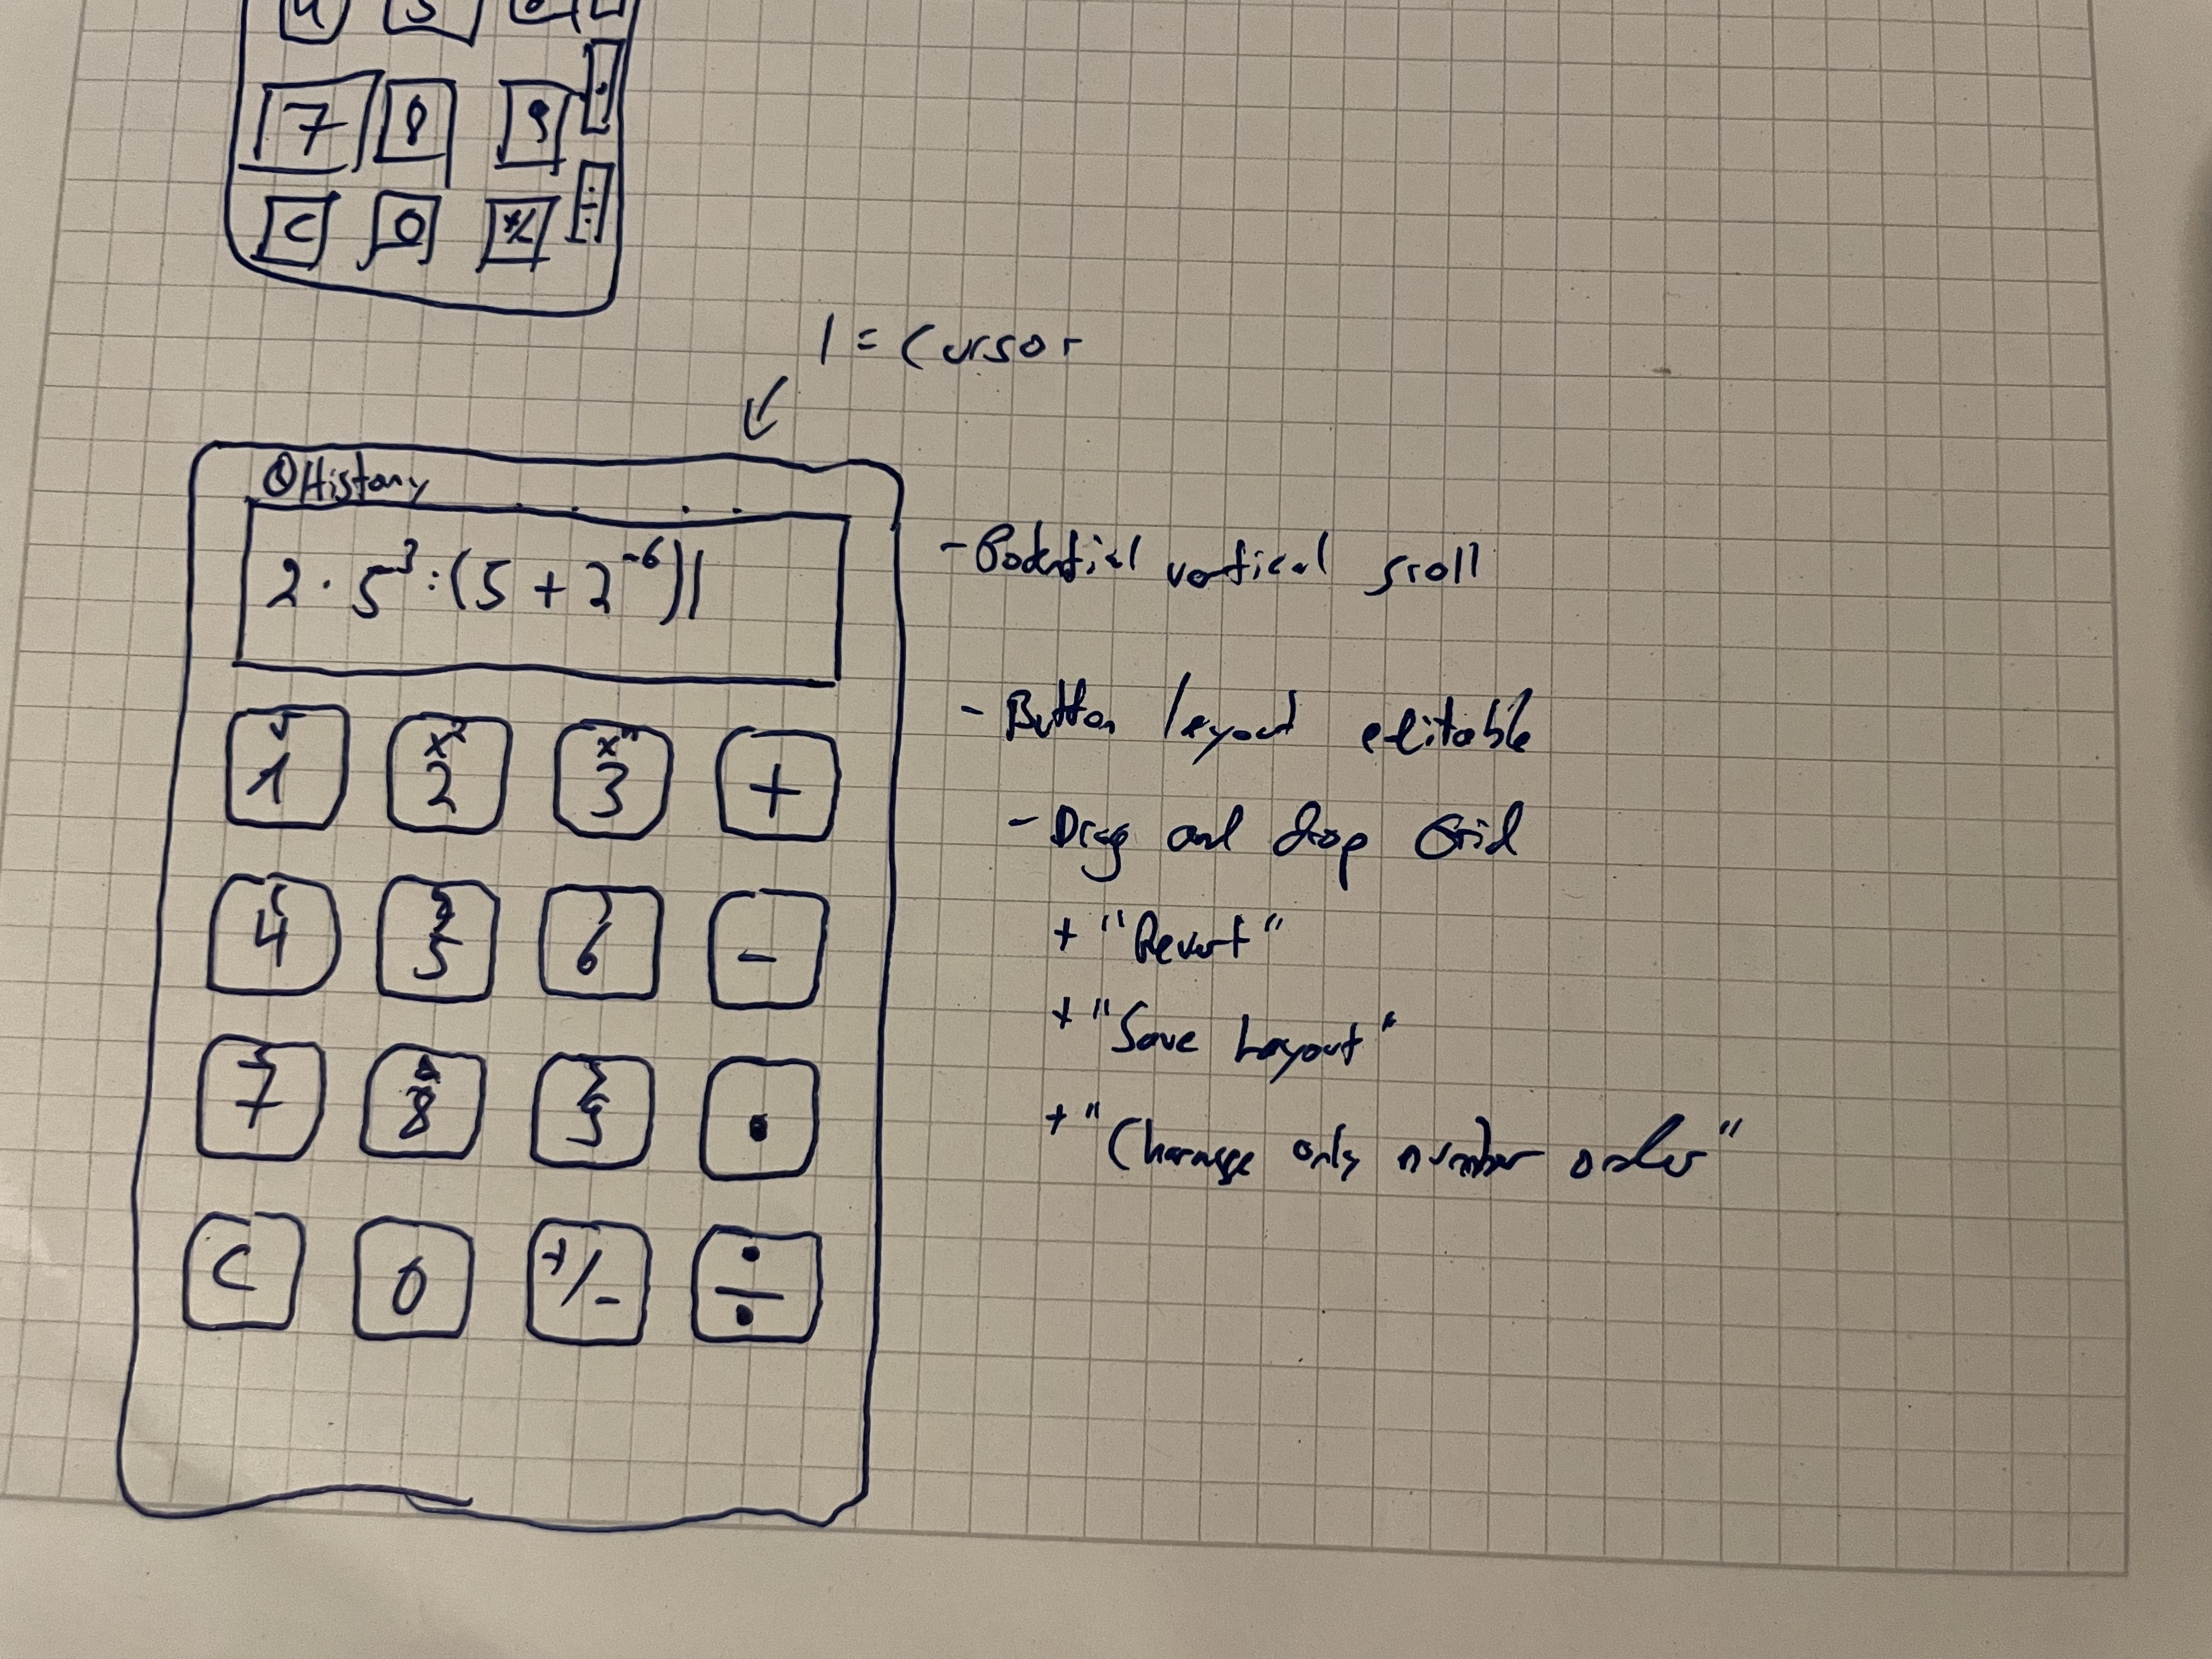 4 5
7 8 9 ·
C 0 +/- ÷
| = Cursor
History
2 · 5³ : (5 + 2⁻⁶)|
√ x² xⁿ
1 2 3 +
( )
4 5 6 -
7 8 9 ·
C 0 +/- ÷
- Potential vertical scroll
- Button layout editable
- Drag and drop Grid
+ "Revert"
+ "Save Layout"
+ "Change only number order"